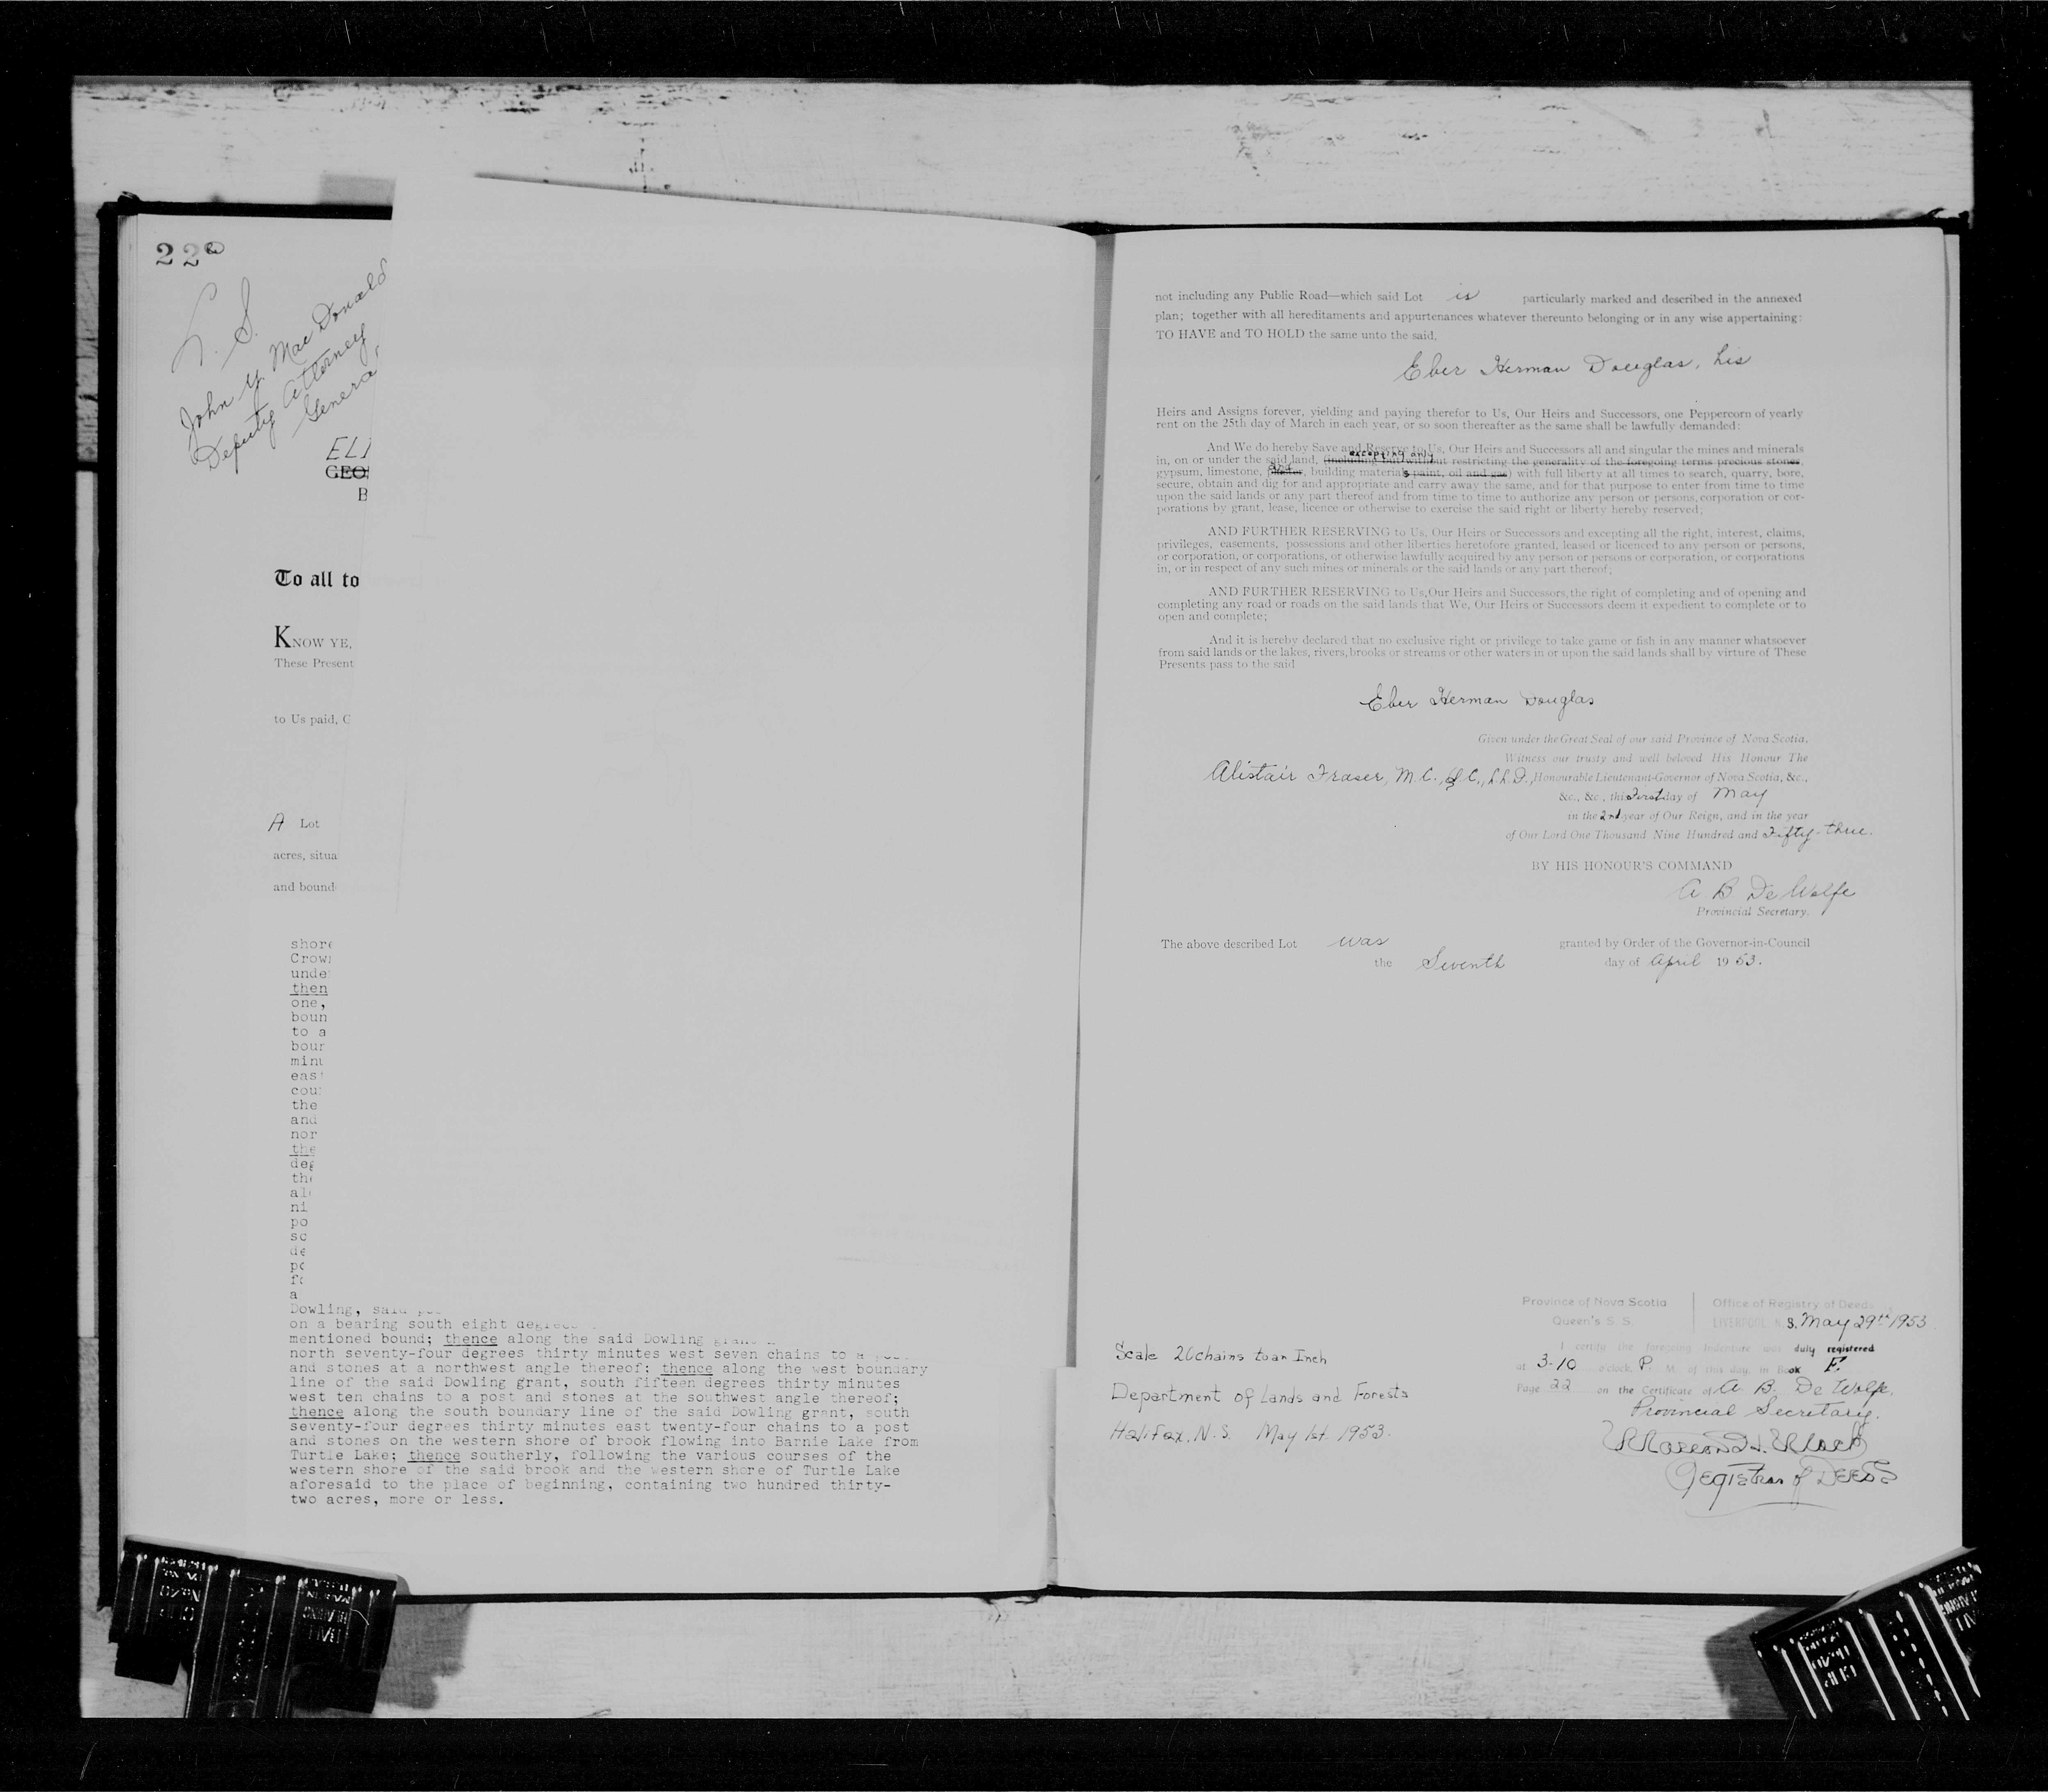 22
L. S.
John Y. MacDonald
Deputy Attorney
General
ELI
GEO
B
To all to
KNOW YE,
These Present
to Us paid, C
A Lot
acres, situa
and bound
shore
Crow
unde
then
one,
boun
to a
bour
minu
east
cou
the
and
nor
the
deg
the
alo
ni
po
so
de
po
fo
a
Dowling, said
on a bearing south eight degrees
mentioned bound; thence along the said Dowling
north seventy-four degrees thirty minutes west seven chains to a post
and stones at a northwest angle thereof; thence along the west boundary
line of the said Dowling grant, south fifteen degrees thirty minutes
west ten chains to a post and stones at the southwest angle thereof;
thence along the south boundary line of the said Dowling grant, south
seventy-four degrees thirty minutes east twenty-four chains to a post
and stones on the western shore of brook flowing into Barnie Lake from
Turtle Lake; thence southerly, following the various courses of the
western shore of the said brook and the western shore of Turtle Lake
aforesaid to the place of beginning, containing two hundred thirty-
two acres, more or less.
not including any Public Road—which said Lot is particularly marked and described in the annexed
plan; together with all hereditaments and appurtenances whatever thereunto belonging or in any wise appertaining:
TO HAVE and TO HOLD the same unto the said,
Eber Herman Douglas, his
Heirs and Assigns forever, yielding and paying therefor to Us, Our Heirs and Successors, one Peppercorn of yearly
rent on the 25th day of March in each year, or so soon thereafter as the same shall be lawfully demanded:
And We do hereby Save and Reserve to Us, Our Heirs and Successors all and singular the mines and minerals
excepting only
in, on or under the said land, (including but without restricting the generality of the foregoing terms precious stones,
and
gypsum, limestone, building materials paint, oil and gas) with full liberty at all times to search, quarry, bore,
secure, obtain and dig for and appropriate and carry away the same, and for that purpose to enter from time to time
upon the said lands or any part thereof and from time to time to authorize any person or persons, corporation or cor-
porations by grant, lease, licence or otherwise to exercise the said right or liberty hereby reserved;
AND FURTHER RESERVING to Us, Our Heirs or Successors and excepting all the right, interest, claims,
privileges, easements, possessions and other liberties heretofore granted, leased or licenced to any person or persons,
or corporation, or corporations, or otherwise lawfully acquired by any person or persons or corporation, or corporations
in, or in respect of any such mines or minerals or the said lands or any part thereof;
AND FURTHER RESERVING to Us, Our Heirs and Successors, the right of completing and of opening and
completing any road or roads on the said lands that We, Our Heirs or Successors deem it expedient to complete or to
open and complete;
And it is hereby declared that no exclusive right or privilege to take game or fish in any manner whatsoever
from said lands or the lakes, rivers, brooks or streams or other waters in or upon the said lands shall by virture of These
Presents pass to the said
Eber Herman Douglas
Given under the Great Seal of our said Province of Nova Scotia.
Witness our trusty and well beloved His Honour The
Alistair Fraser, M.C., Q.C., LL.D., Honourable Lieutenant-Governor of Nova Scotia, &c.,
&c., &c., this First day of May
in the 2nd year of Our Reign, and in the year
of Our Lord One Thousand Nine Hundred and Fifty-three.
BY HIS HONOUR'S COMMAND
A B DeWolfe
Provincial Secretary.
The above described Lot was granted by Order of the Governor-in-Council
the Seventh day of April 1953.
Province of Nova Scotia
Queen's S. S.
Office of Registry of Deeds
LIVERPOOL, N. S. May 29th 1953
I certify the foregoing Indenture was duly registered
at 3-10 o'clock P. M. of this day, in Book F.
Page 22 on the Certificate of A. B. DeWolfe,
Provincial Secretary.
Registrar of Deeds
Scale 20 chains to an Inch
Department of Lands and Forests
Halifax, N.S. May 1st. 1953.